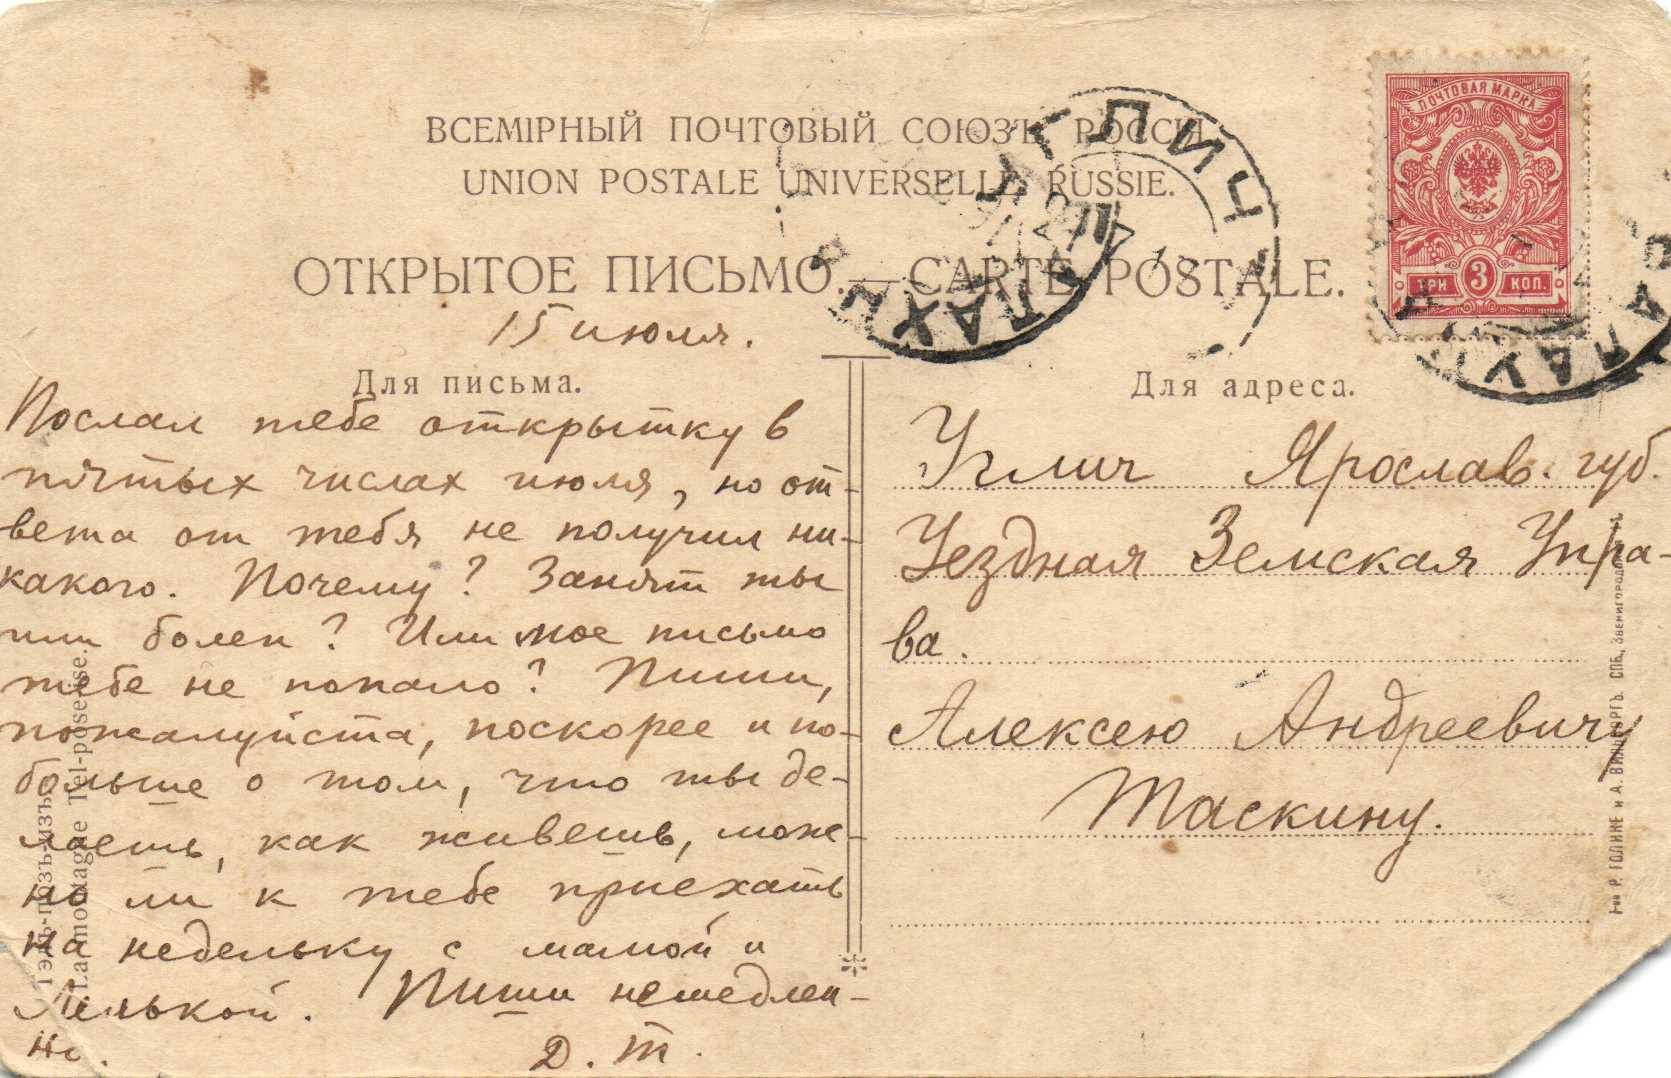 ВСЕМІРНЫЙ ПОЧТОВЫЙ СОЮЗЪ РОССІЯ
UNION POSTALE UNIVERSELLE RUSSIE.
ОТКРЫТОЕ ПИСЬМО.—CARTE POSTALE.
ПОЧТОВАЯ МАРКА
ТРИ 3 КОП.
УГЛИЧ
15 июля.
Для письма.
Послал тебе открытку в
пятых числах июля, но от-
вета от тебя не получил ни-
какого. Почему? Занят ты
или болен? Или мое письмо
тебе не попало? Пиши,
пожалуйста, поскорее и по-
больше о том, что ты де-
лаешь, как живешь, мож-
но ли к тебе приехать
на недельку с мамой и
Лелькой. Пиши немедлен-
но.
Д. Т.
Для адреса.
Углич Ярослав. губ.
Уездная Земская Упра-
ва.
Алексею Андреевичу
Таскину.
La montagne Tel-posek-Ise.
Р. ГОЛИКЕ и А. ВИЛЬБОРГЪ. СПБ., ЗВЕНИГОРОДСКАЯ